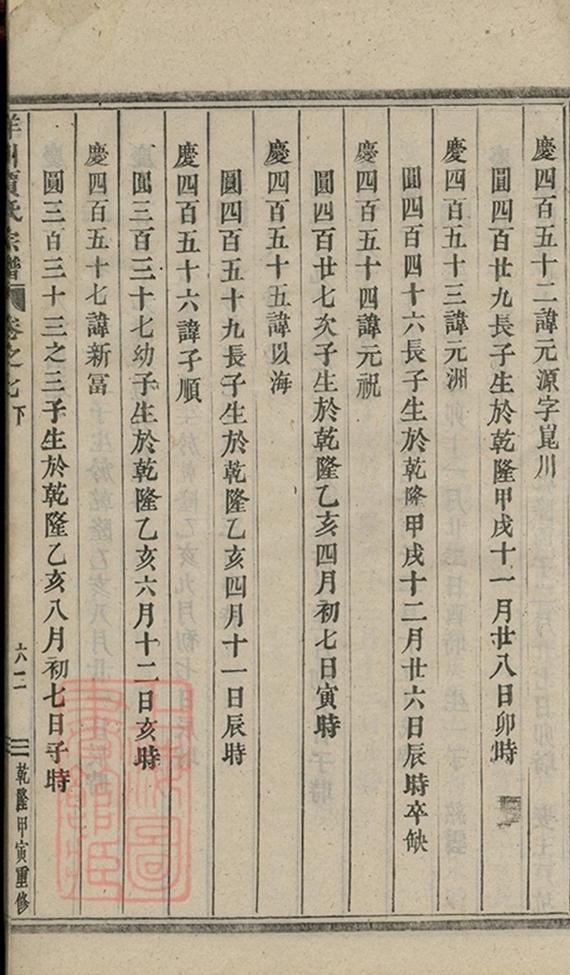 慶四百五十二諱元源字崑川
圓四百廿九長子生於乾隆甲戌十一月廿八日卯時
慶四百五十三諱元洲
圓四百四十六長子生於乾隆甲戌十二月廿六日辰時卒缺
慶四百五十四諱元祝
圓四百廿七次子生於乾隆乙亥四月初七日寅時
慶四百五十五諱以海
圓四百五十九長子生於乾隆乙亥四月十一日辰時
慶四百五十六諱子順
圓三百三十七幼子生於乾隆乙亥六月十二日亥時
慶四百五十七諱新富
圓三百三十三之三子生於乾隆乙亥八月初七日子時
氏宗譜 卷之七下 六二 三 乾隆甲寅重修